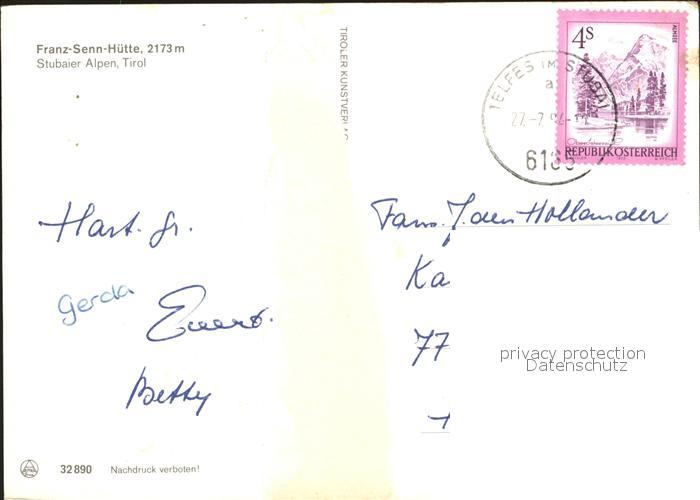 Franz-Senn-Hütte, 2173 m
Stubaier Alpen, Tirol
TIROLER KUNSTVERLAG
4S
ALMSEE
REPUBLIK ÖSTERREICH
TELFES IM STUBAI
a
27.-7.
6165
Hart. gr.
Gerda
Evert.
Betty
Fam. J. den Hollander
Ka
77
privacy protection
Datenschutz
32 890 Nachdruck verboten!